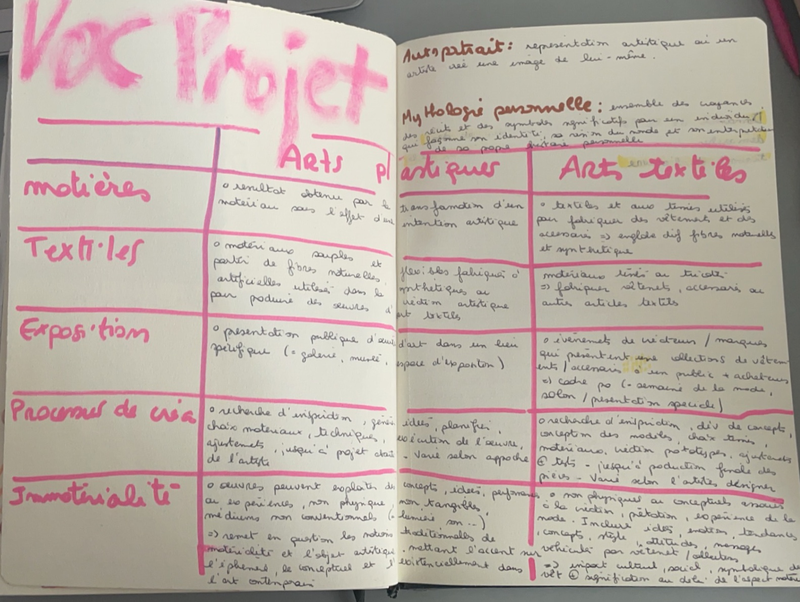 Voc Projet
Autoportrait : représentation artistique où un
artiste crée une image de lui-même.
Mythologie personnelle : ensemble des croyances
des récits et des symboles significatifs pour un individu,
qui façonne son identité, sa vision du monde et son interprétation
de sa propre histoire personnelle
Arts plastiques
Arts textiles
matières
o résultat obtenu par la transformation d'un
matériau sous l'effet d'une intention artistique
o textiles et aux utilisés
pour fabriquer des vêtements et des
accessoires => englobe dif fibres naturelles
et synthétique
Textiles
o matériaux souples et flexibles fabriqués à
partir de fibres naturelles, synthétiques ou
artificielles utilisés dans la création artistique
pour produire des œuvres d'art textiles
matériaux tissés ou tricotés
=> fabriquer vêtements, accessoires ou
autres articles textils
Exposition
o présentation publique d'œuvres d'art dans un lieu
spécifique (= galerie, musée, espace d'exposition)
o évènements de créateurs / marques
qui présentent une collections de vêtem
ents / accessoires à un public + acheteurs
=> cadre pro (= semaine de la mode,
salon / présentation spéciale)
Processus de créa
o recherche d'inspiration, idées, planifier,
choix matériaux, techniques, exécution de l'œuvre,
ajustements, jusqu'à projet - Varié selon approche
de l'artiste
o recherche d'inspiration, dév de concepts,
conception des modèles, choix
matériaux, création prototypes, ajustements
tests - jusqu'à production finale des
pièces - Varié selon l'artiste designer
Immatérialité
o œuvres peuvent exploiter des concepts, idées, performances
ou expériences, non physique, non tangibles,
médiums non conventionnels (= lumière son ..)
=> remet en question les notions traditionnelles de
matérialité et l'objet artistique, mettant l'accent sur
l'éphémère, le conceptuel et l'existenciellement dans
l'art contemporain
o non physique ou conceptuels associés
à la création, expérience de la
mode. Inclure idées, création, tendances,
concepts, style, attitudes, messages
véhiculés par vêtement / collection
=> impact culturel, social, symbolique des
vêt signification au delà de l'aspect matériel